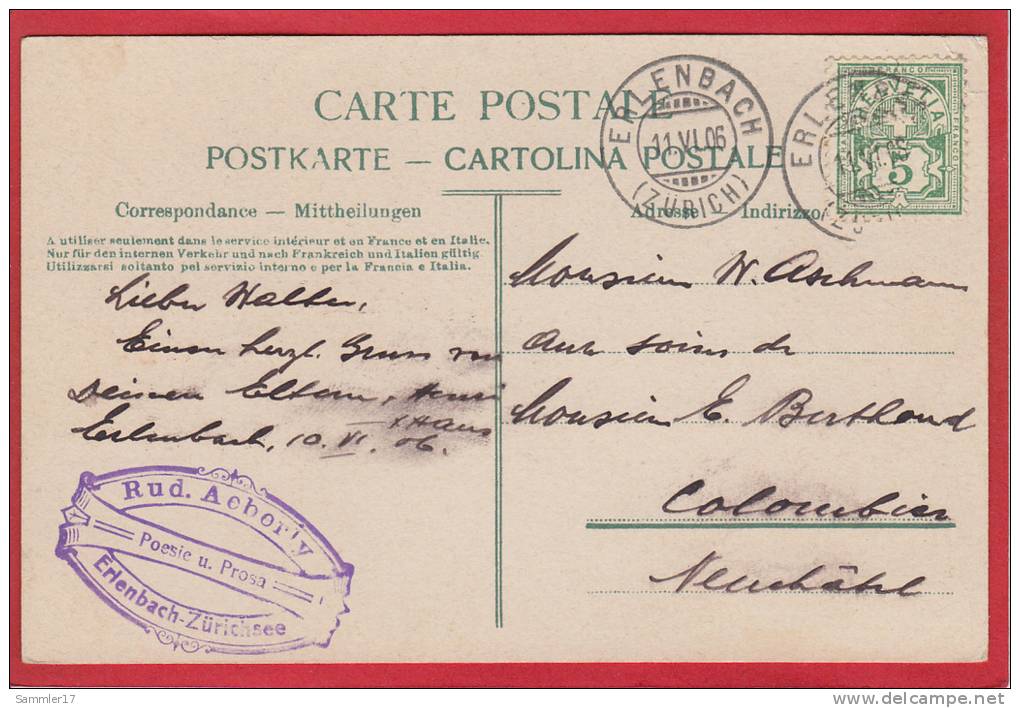 CARTE POSTALE
POSTKARTE — CARTOLINA POSTALE
Correspondance — Mittheilungen
A utiliser seulement dans le service intérieur et en France et en Italie.
Nur für den internen Verkehr und nach Frankreich und Italien gültig.
Utilizzarsi soltanto pel servizio interno e per la Francia e Italia.
Adresse Indirizzo
ERLENBACH
11.VI.06
(ZÜRICH)
FRANCO
HELVETIA
5
Lieber Walter,
Einen herzl. Gruss von
Deinen Eltern, Henri
& Hans
Erlenbach, 10. VI. 06.
Rud. Aeberly
Poesie u. Prosa
Erlenbach-Zürichsee
Monsieur W. Aschmann
aux soins de
Monsieur E. Berthoud
Colombier
Neuchâtel
Sammler17
www.delcampe.net